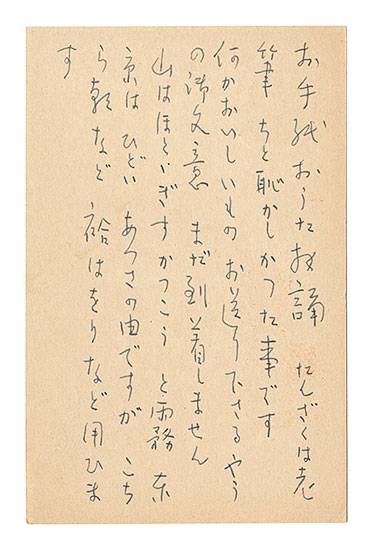 お手紙おうた拝誦 たんざくは老
筆 ちと恥かしかつた事です
何かおいしいもの お送り下さるやう
の御文意 まだ到着しません
山はほとゝぎすかつこう と雨 東
京は ひどい あつさの由ですが こち
ら など 袷はをりなど用ひま
す